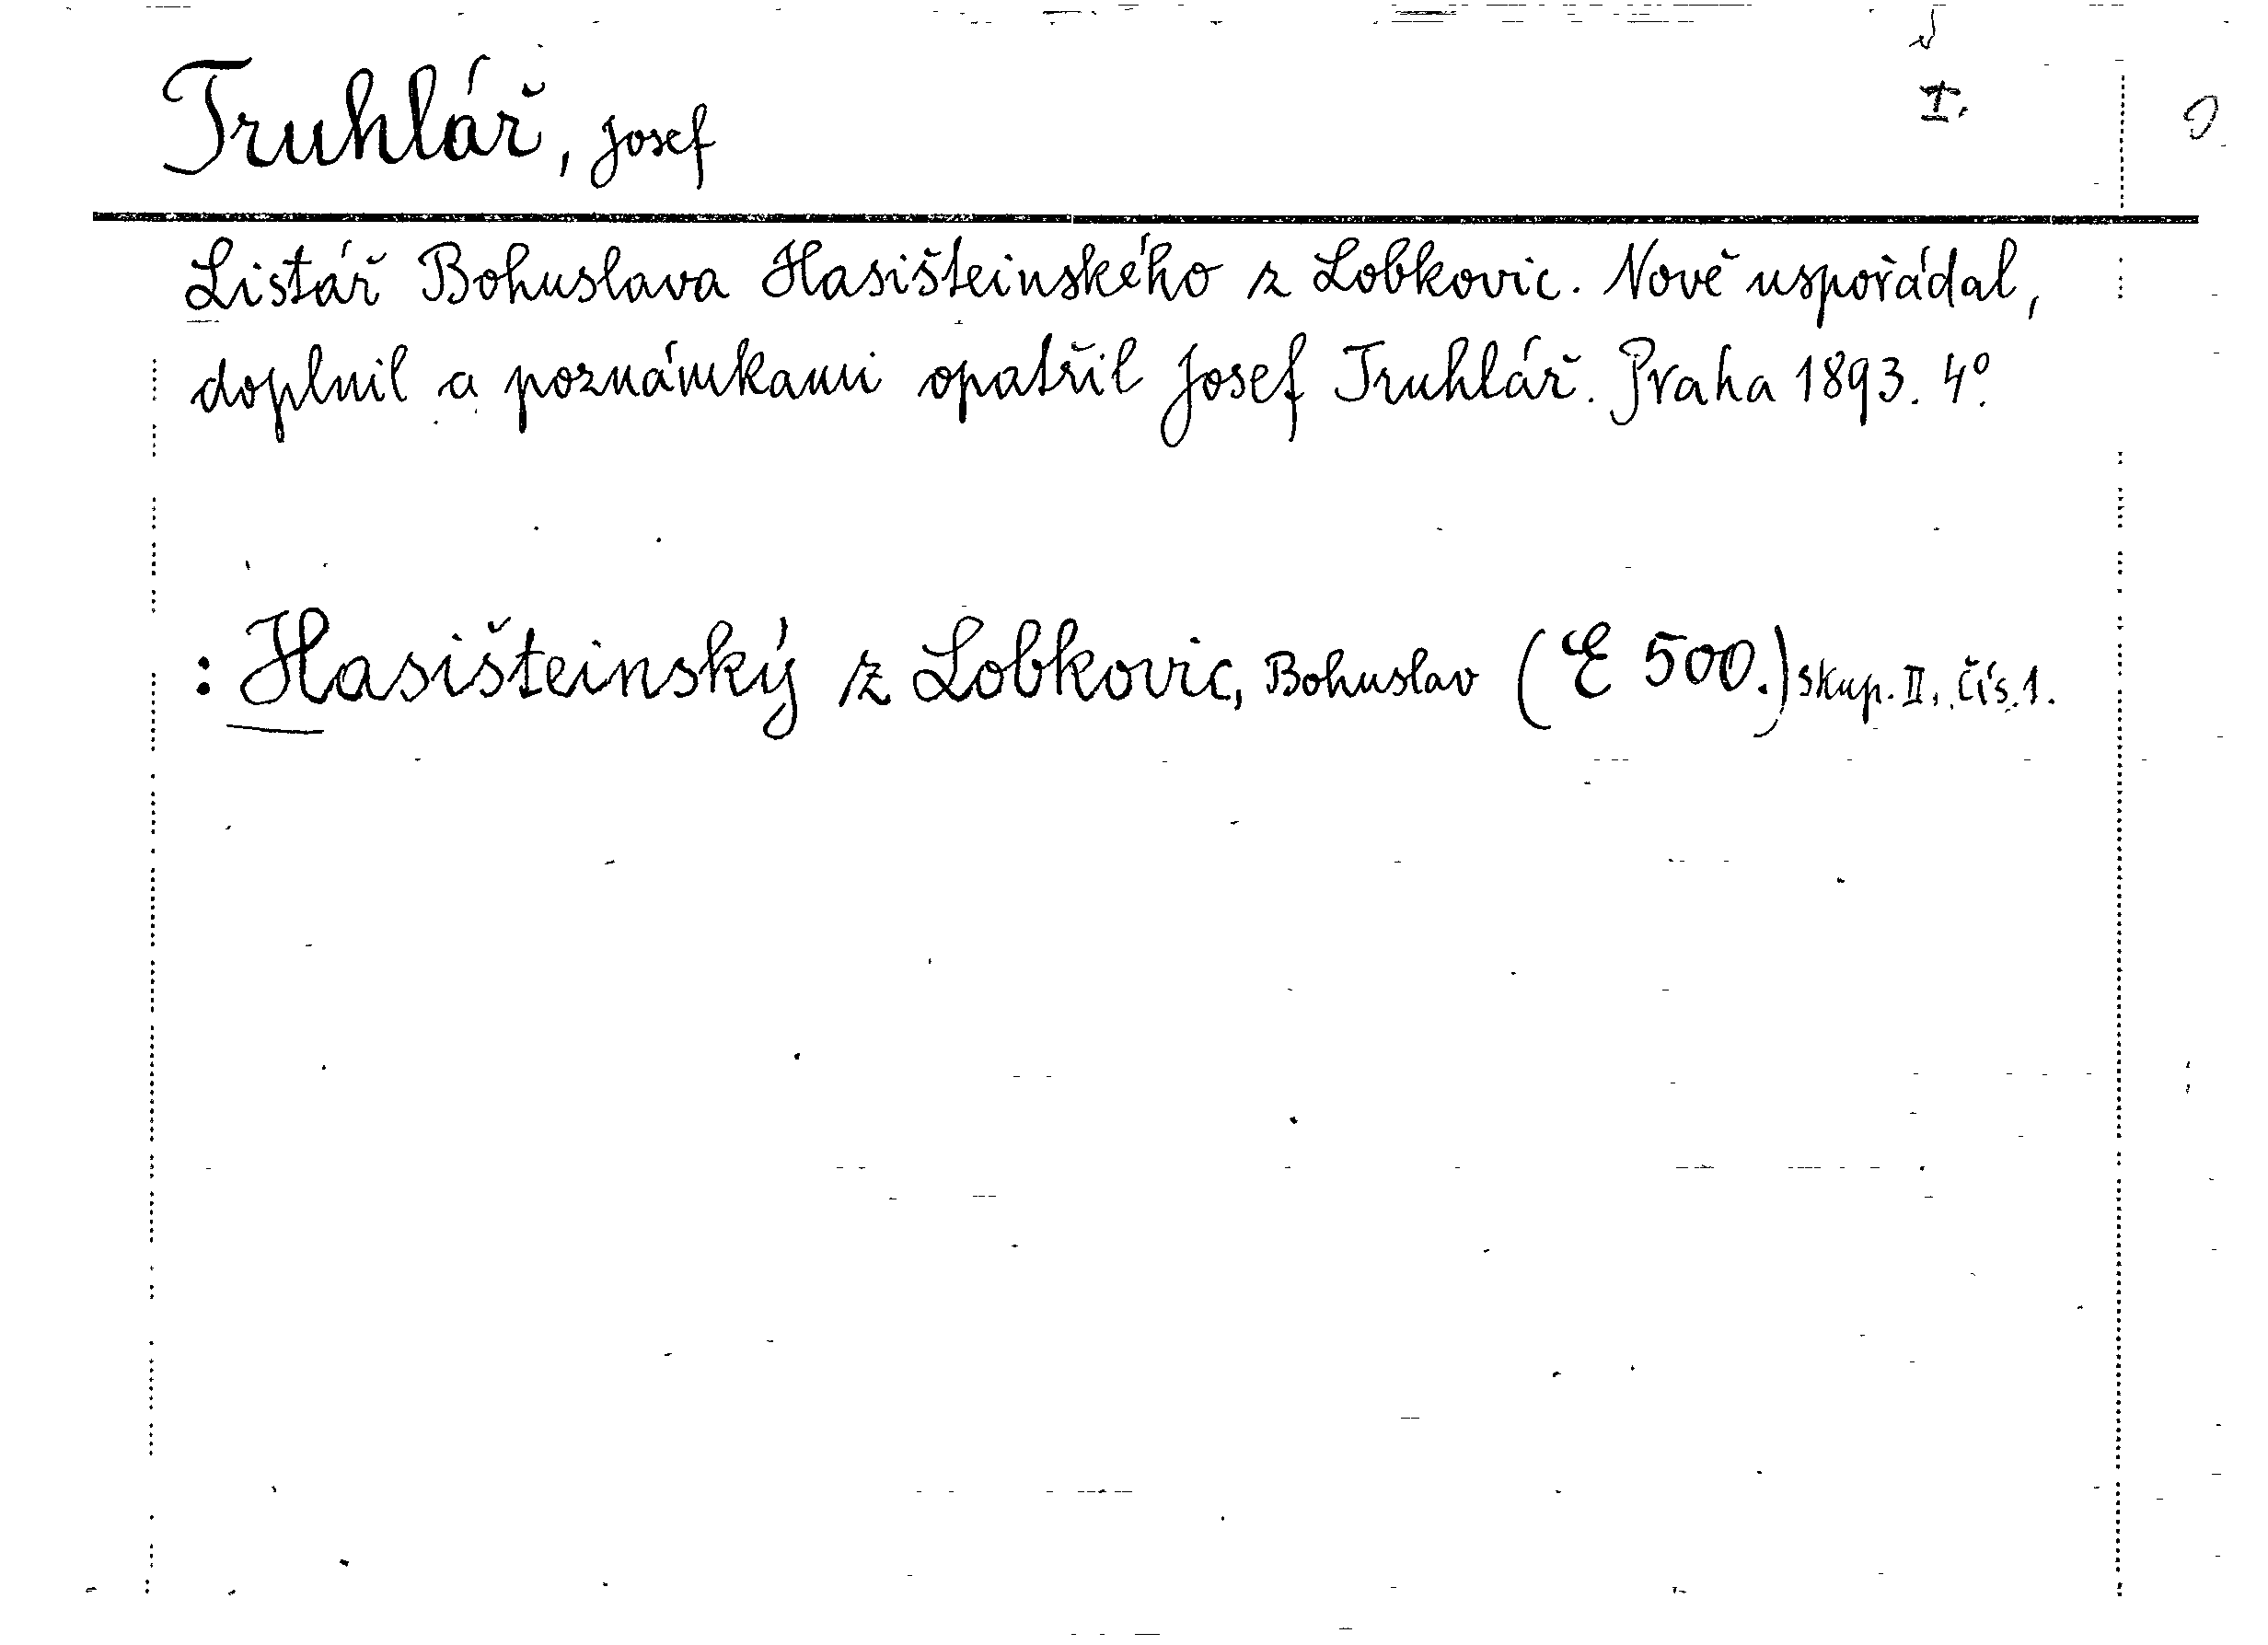 Truhlář, Josef
I.
Listář Bohuslava Hasišteinského z Lobkovic. Nově uspořádal,
doplnil a poznámkami opatřil Josef Truhlář. Praha 1893. 4º.
: Hasišteinský z Lobkovic, Bohuslav (E 500.) skup. II. čís. 1.